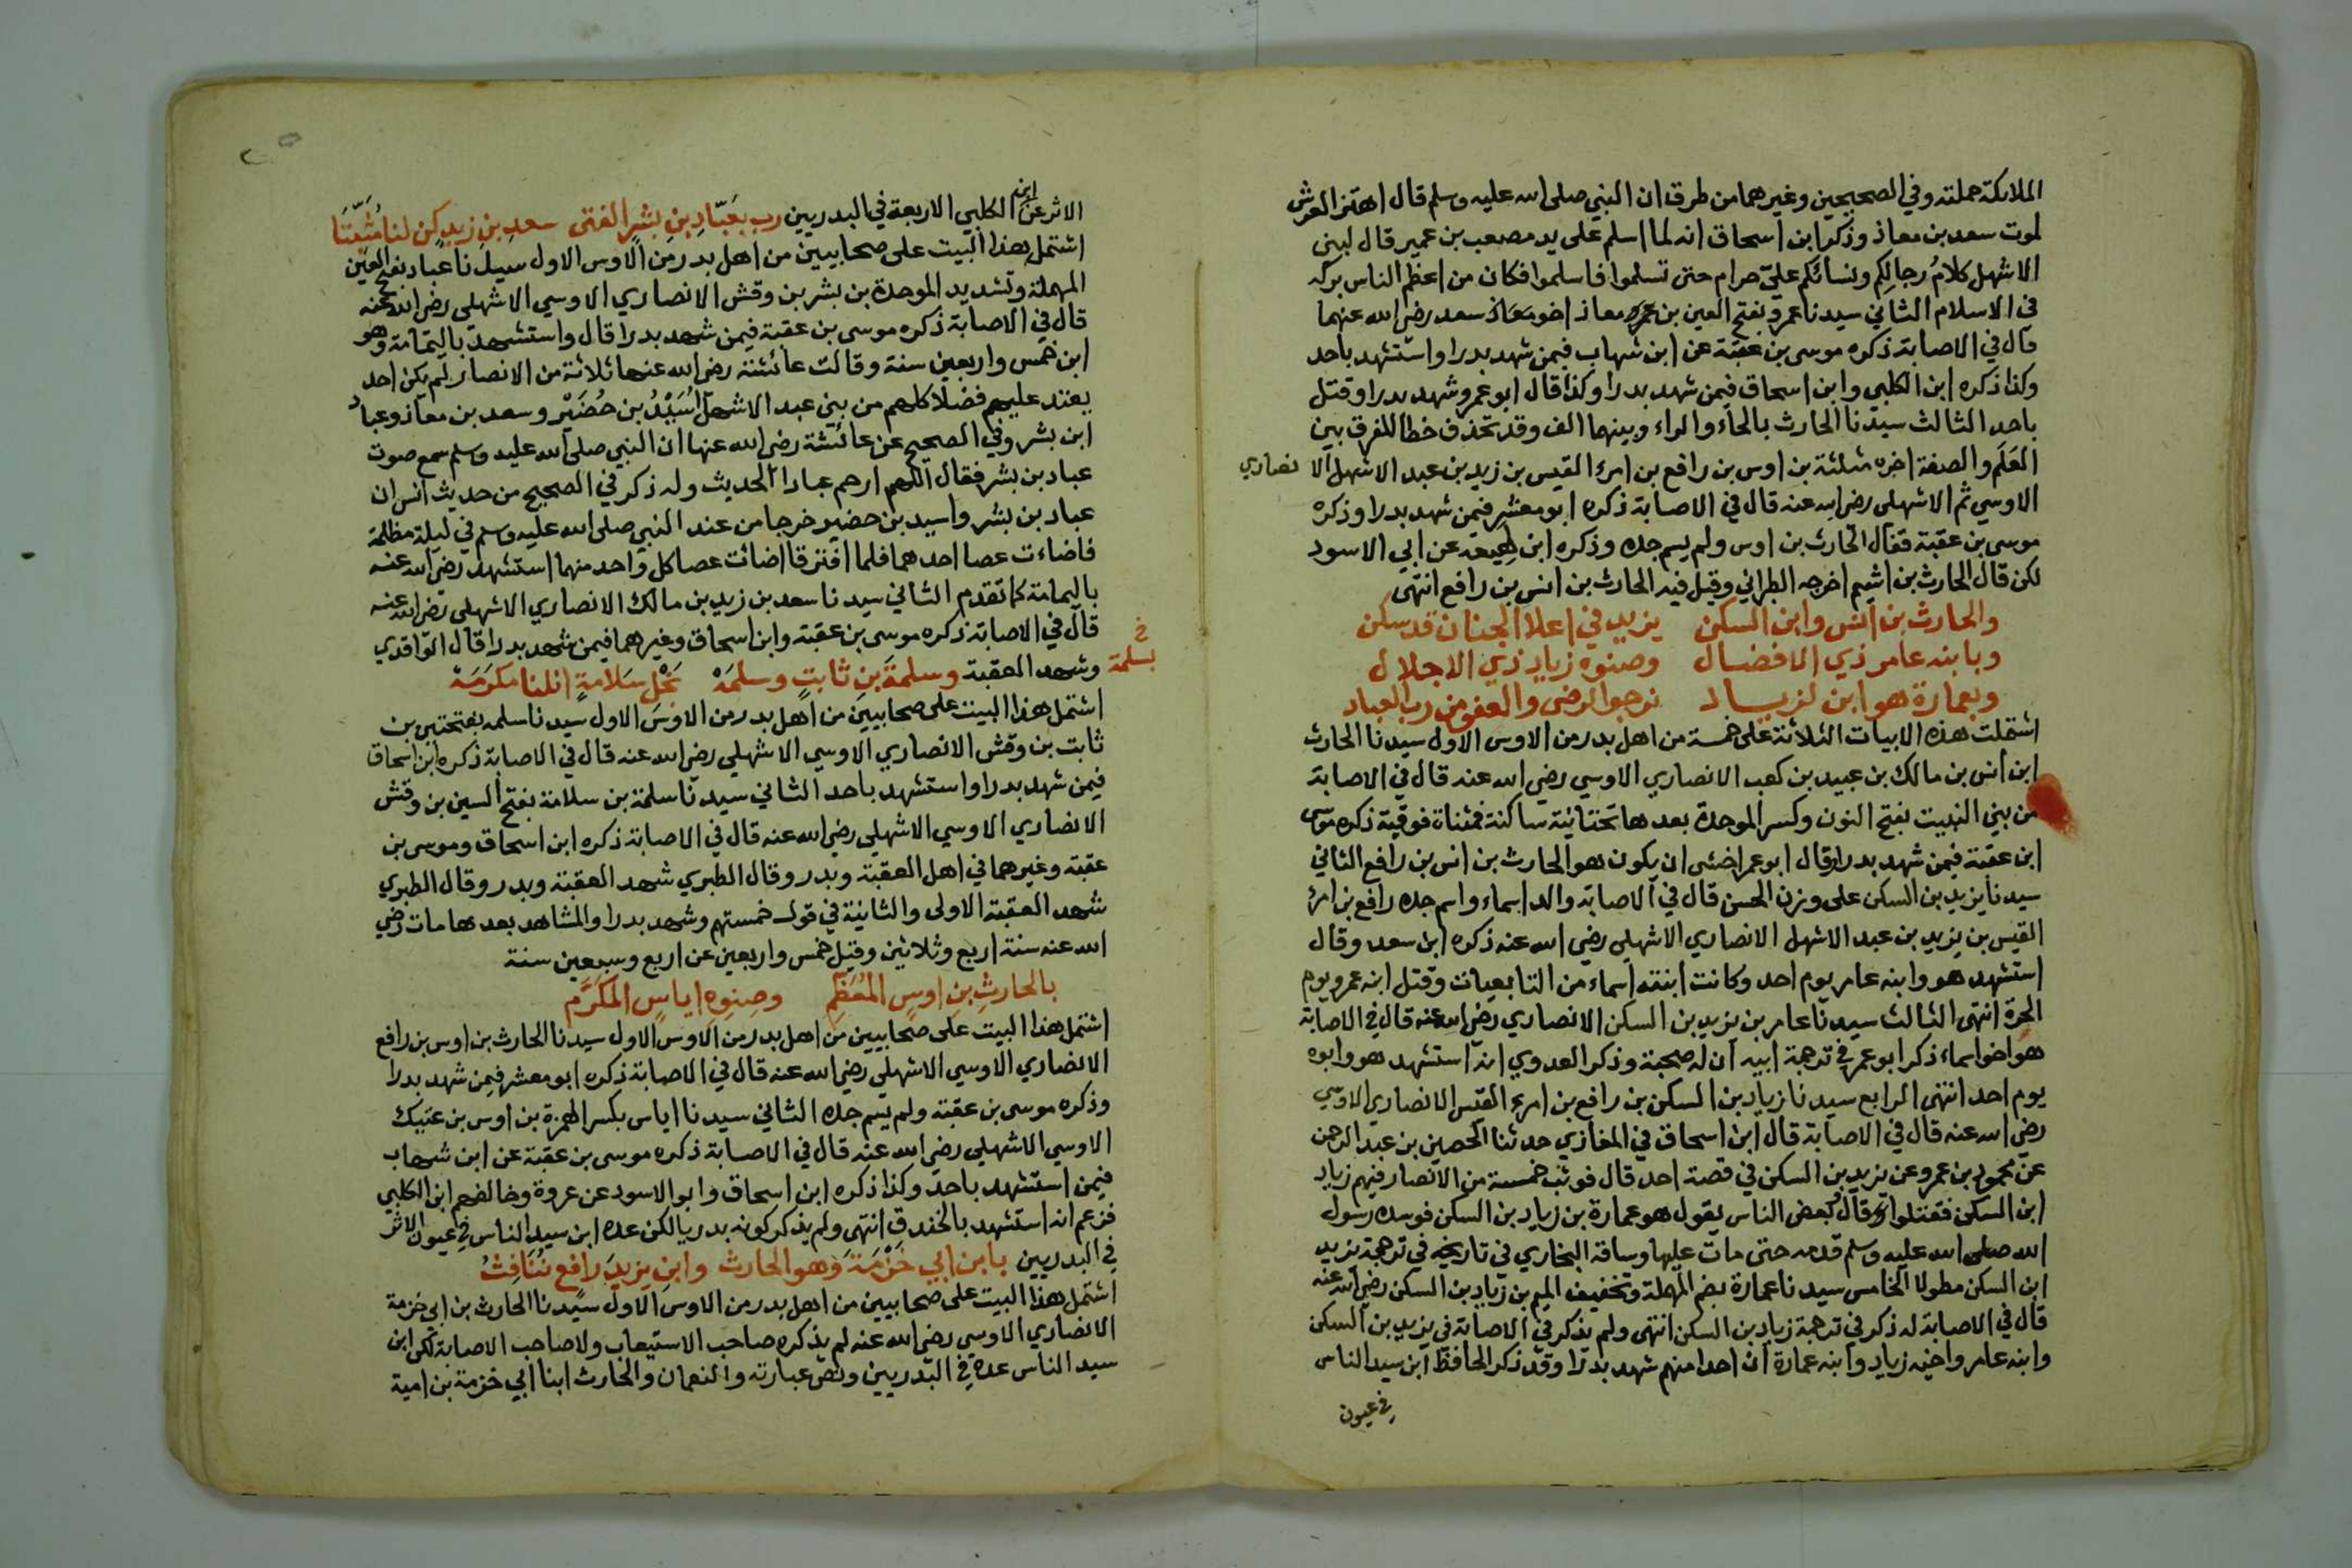 الملائكة حملته وفي الصحيحين وغيرهما من طرق ان النبي صلى الله عليه وسلم قال اهتز العرش
لموت سعد بن معاذ وذكر ابن اسحاق انه لما اسلم على يد مصعب بن عمير قال لبني
الاشهل كلامُ رجالكم ونسائكم عليّ حرام حتى تسلموا فاسلموا فكان من اعظم الناس بركة
في الاسلام الثاني سيدنا عمرو بفتح العين بن معاذ اخو سعد رضي الله عنهما
قال في الاصابة ذكره موسى بن عقبة عن ابن شهاب فيمن شهد بدرا واستشهد باحد
وكذا ذكره ابن الكلبي وابن اسحاق فيمن شهد بدرا وكذا قال ابو عمر وشهد بدرا وقتل
باحد الثالث سيدنا الحارث بالحاء والراء وبينهما الف وقد تحذف خطا للفرق بين
العَلَم والصفة اخره مثلثة بن اوس بن رافع بن امرئ القيس بن زيد بن عبد الاشهل الانصاري
الاوسي ثم الاشهلي رضي الله عنه قال في الاصابة ذكره ابو معشر فيمن شهد بدرا وذكره
موسى بن عقبة فقال الحارث بن اوس ولم يسم جده وذكره ابن لهيعة عن ابي الاسود
لكن قال الحارث بن اشيم اخرجه الطبراني وقيل فيه الحارث بن انس بن رافع انتهى
والحارث بن انس وابن السكن يزيد في اعلا الجنان قد سكن
وبابنه عامر ذي الافضال وصنوه زياد ذي الاجلال
وبعمارة هو ابن لزياد نرجو الرضى والعفو من رب العباد
اشتملت هذه الابيات الثلاثة على خمسة من اهل بدر من الاوس الاول سيدنا الحارث
ابن انس بن مالك بن عبيد بن كعب الانصاري الاوسي رضي الله عنه قال في الاصابة
من بني النبيت بفتح النون وكسر الموحدة بعدها تحتانية ساكنة فمثناة فوقية ذكره موسى
ابن عقبة فيمن شهد بدرا وقال ابو عمر اخشى ان يكون هو الحارث بن انس بن رافع الثاني
سيدنا يزيد بن السكن على وزن الحسن قال في الاصابة والد اسماء واسم جده رافع بن امرئ
القيس بن يزيد بن عبد الاشهل الانصاري الاشهلي رضي الله عنه ذكره ابن سعد وقال
استشهد هو وابنه عامر يوم احد وكانت ابنته اسماء من التابعيات وقتل ابنه عمرو يوم
الحرة انتهى الثالث سيدنا عامر بن يزيد بن السكن الانصاري رضي الله عنه قال في الاصابة
هو اخو اسماء ذكر ابو عمر في ترجمة ابيه ان له صحبة وذكر العدوي انه استشهد هو وابوه
يوم احد انتهى الرابع سيدنا زياد بن السكن بن رافع بن امرئ القيس الانصاري الاوسي
رضي الله عنه قال في الاصابة قال ابن اسحاق في المغازي حدثنا الحصين بن عبد الرحمن
عن محمود بن عمرو عن يزيد بن السكن في قصة احد قال فوثب خمسة من الانصار فيهم زياد
ابن السكن فقتلوا وقال بعض الناس يقول هو عمارة بن زياد بن السكن فوسده رسول
الله صلى الله عليه وسلم قدمه حتى مات عليها وساقه البخاري في تاريخه في ترجمة يزيد
ابن السكن مطولا الخامس سيدنا عمارة بضم المهملة وتخفيف الميم بن زياد بن السكن رضي الله عنه
قال في الاصابة له ذكر في ترجمة زياد بن السكن انتهى ولم يذكر في الاصابة في يزيد بن السكن
وابنه عامر واخيه زياد وابنه عمارة ان احدا منهم شهد بدرا وقد ذكر الحافظ ابن سيد الناس
في عيون
الاثر عن ابن الكلبي الاربعة في البدريين رب بعَبّادِ بنِ بشرٍ الفتى سعدِ بنِ زيدٍ كن لنا مُثَبِّتَا
اشتمل هذا البيت على صحابيين من اهل بدر من الاوس الاول سيدنا عباد بفتح العين
المهملة وتشديد الموحدة بن بشر بن وقش الانصاري الاوسي الاشهلي رضي الله عنه
قال في الاصابة ذكره موسى بن عقبة فيمن شهد بدرا قال واستشهد باليمامة وهو
ابن خمس واربعين سنة وقالت عائشة رضي الله عنها ثلاثة من الانصار لم يكن احد
يعتد عليهم فضلا كلهم من بني عبد الاشهل اُسَيْدُ بن حُضَيْر وسعد بن معاذ وعباد
ابن بشر وفي الصحيح عن عائشة رضي الله عنها ان النبي صلى الله عليه وسلم سمع صوت
عباد بن بشر فقال اللهم ارحم عبادا الحديث وله ذكر في الصحيح من حديث انس ان
عباد بن بشر واسيد بن حضير خرجا من عند النبي صلى الله عليه وسلم في ليلة مظلمة
فاضاءت عصا احدهما فلما افترقا اضائت عصا كل واحد منهما استشهد رضي الله عنه
باليمامة كما تقدم الثاني سيدنا سعد بن زيد بن مالك الانصاري الاشهلي رضي الله عنه
قال في الاصابة ذكره موسى بن عقبة وابن اسحاق وغيرهما فيمن شهد بدرا قال الواقدي
خ
بسلمة
وشهد العقبة وسلمةَ بنِ ثابتٍ وسلمَهْ نجلِ سَلامةٍ انلنا مكرَمَهْ
اشتمل هذا البيت على صحابيين من اهل بدر من الاوس الاول سيدنا سلمه بفتحتين بن
ثابت بن وقش الانصاري الاوسي الاشهلي رضي الله عنه قال في الاصابة ذكره ابن اسحاق
فيمن شهد بدرا واستشهد باحد الثاني سيدنا سلمة بن سلامة بفتح السين بن وقش
الانصاري الاوسي الاشهلي رضي الله عنه قال في الاصابة ذكره ابن اسحاق وموسى بن
عقبة وغيرهما في اهل العقبة وبدر وقال الطبري شهد العقبة وبدر وقال الطبري
شهد العقبة الاولى والثانية في قول خمستهم وشهد بدرا والمشاهد بعدها مات رضي
الله عنه سنة اربع وثلاثين وقيل خمس واربعين عن اربع وسبعين سنة
بالحارثِ بنِ اوسٍ المُعَظَّمِ وصِنوِهِ اياسٍ المكَرَّمِ
اشتمل هذا البيت على صحابيين من اهل بدر من الاوس الاول سيدنا الحارث بن اوس بن رافع
الانصاري الاوسي الاشهلي رضي الله عنه قال في الاصابة ذكره ابو معشر فيمن شهد بدرا
وذكره موسى بن عقبة ولم يسم جده الثاني سيدنا اياس بكسر الهمزة بن اوس بن عتيك
الاوسي الاشهلي رضي الله عنه قال في الاصابة ذكره موسى بن عقبة عن ابن شهاب
فيمن استشهد باحد وكذا ذكره ابن اسحاق وابو الاسود عن عروة وخالفهم ابن الكلبي
فزعم انه استشهد بالخندق انتهى ولم يذكر كونه بدريا لكن عده ابن سيد الناس في عيون الاثر
في البدريين بابن ابي خَزْمَةَ وَهو الحارث وابنِ يزيدَ رافعٍ
اشتمل هذا البيت على صحابيين من اهل بدر من الاوس الاول سيدنا الحارث بن ابي خزمة
الانصاري الاوسي رضي الله عنه لم يذكره صاحب الاستيعاب ولا صاحب الاصابة لكن ابن
سيد الناس عده في البدريين ونص عبارته والنعمان والحارث ابنا ابي خزمة بن امية